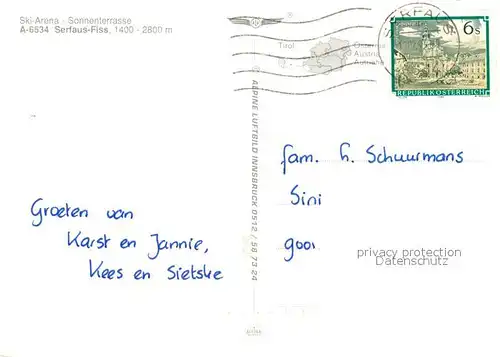 Ski-Arena · Sonnenterrasse
A-6534 Serfaus-Fiss, 1400 - 2800 m
Tirol
Austria
6s
REPUBLIK ÖSTERREICH
SERFAUS
ALPINE LUFTBILD INNSBRUCK 0512 / 58 73 24
fam. h. Schuurmans
Sini
goor
Groeten van
Karst en Jannie,
Kees en Sietske
privacy protection
Datenschutz